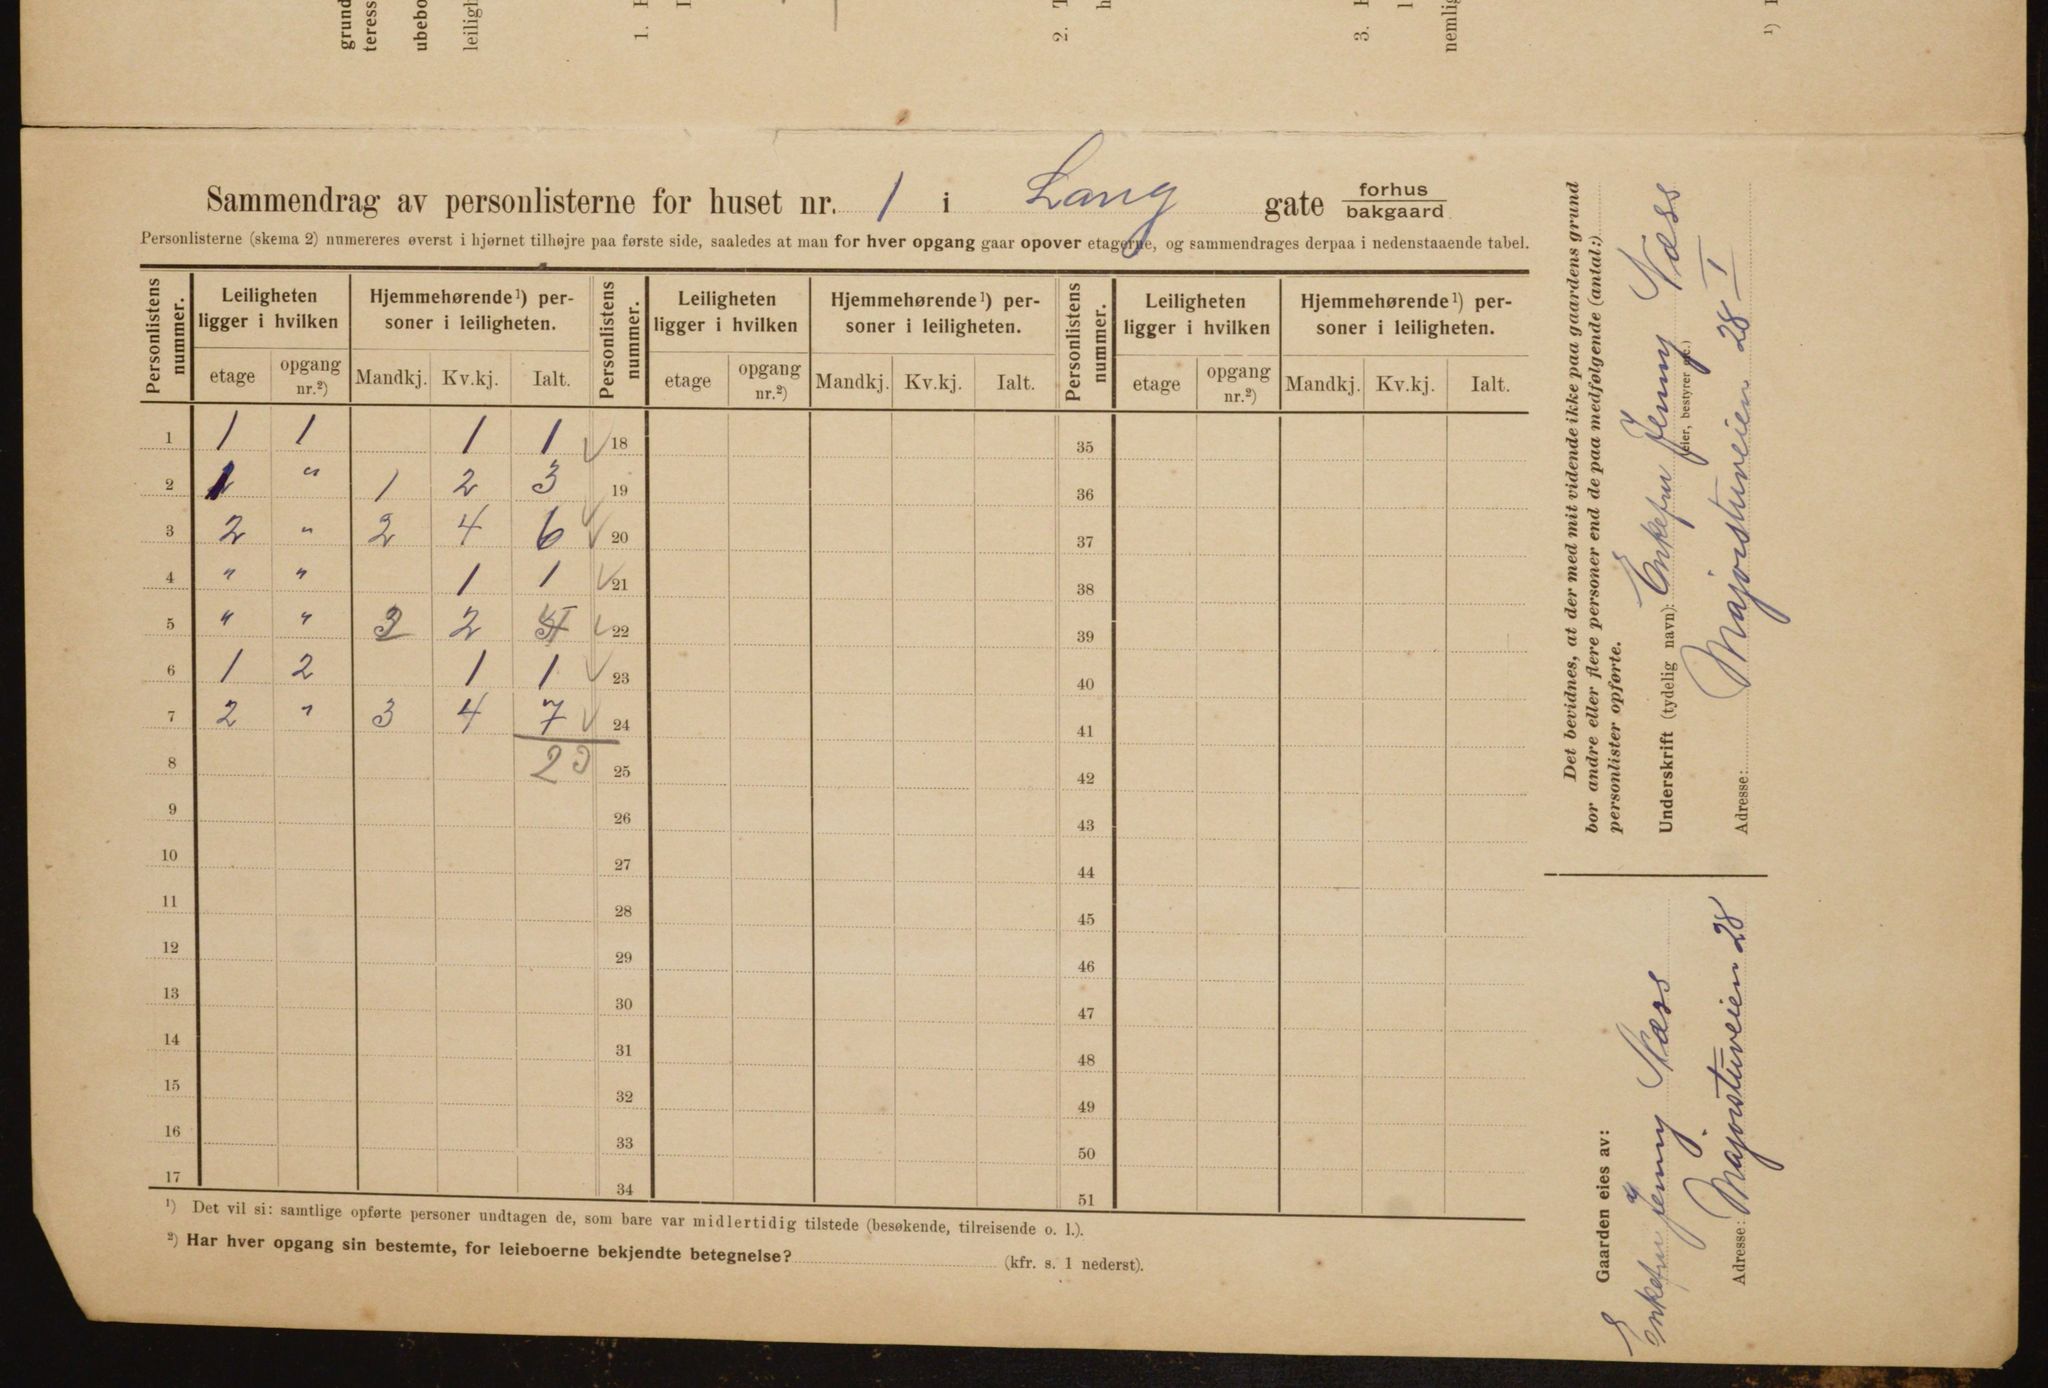 grund
teress
ubebo
leiligh
1.
2.
3.
nemlig
¹)
Sammendrag av personlisterne for huset nr. 1 i Lang gate forhus bakgaard
Personlisterne (skema 2) numereres øverst i hjørnet tilhøjre paa første side, saaledes at man for hver opgang gaar opover etagerne, og sammendrages derpaa i nedenstaaende tabel.
Personlistens nummer. Leiligheten ligger i hvilken Hjemmehørende ¹) personer i leiligheten. Personlistens nummer. Leiligheten ligger i hvilken Hjemmehørende ¹) personer i leiligheten. Personlistens nummer. Leiligheten ligger i hvilken Hjemmehørende ¹) personer i leiligheten.
etage opgang nr.²) Mandkj. Kv.kj. Ialt. etage opgang nr.²) Mandkj. Kv.kj. Ialt. etage opgang nr.²) Mandkj. Kv.kj. Ialt.
1 1 1 1 1 18 35
2 1 " 1 2 3 19 36
3 2 " 2 4 6 20 37
4 " " 1 1 21 38
5 " " 2 22 39
6 1 2 1 1 23 40
7 2 " 3 4 7 24 41
8 25 42
9 26 43
10 27 44
11 28 45
12 29 46
13 30 47
14 31 48
15 32 49
16 33 50
17 34 51
¹) Det vil si: samtlige opførte personer undtagen de, som bare var midlertidig tilstede (besøkende, tilreisende o. l.).
²) Har hver opgang sin bestemte, for leieboerne bekjendte betegnelse? (kfr. s. 1 nederst).
Det bevidnes, at der med mit vidende ikke paa gaardens grund
bor andre eller flere personer end de paa medfølgende (antal:)
personlister opførte.
Underskrift (tydelig navn): Enkefru Jenny Næss
(eier, bestyrer etc.)
Adresse: Majorstuveien 28 I
Gaarden eies av:
Enkefru Jenny Næss
Adresse: Majorstuveien 28